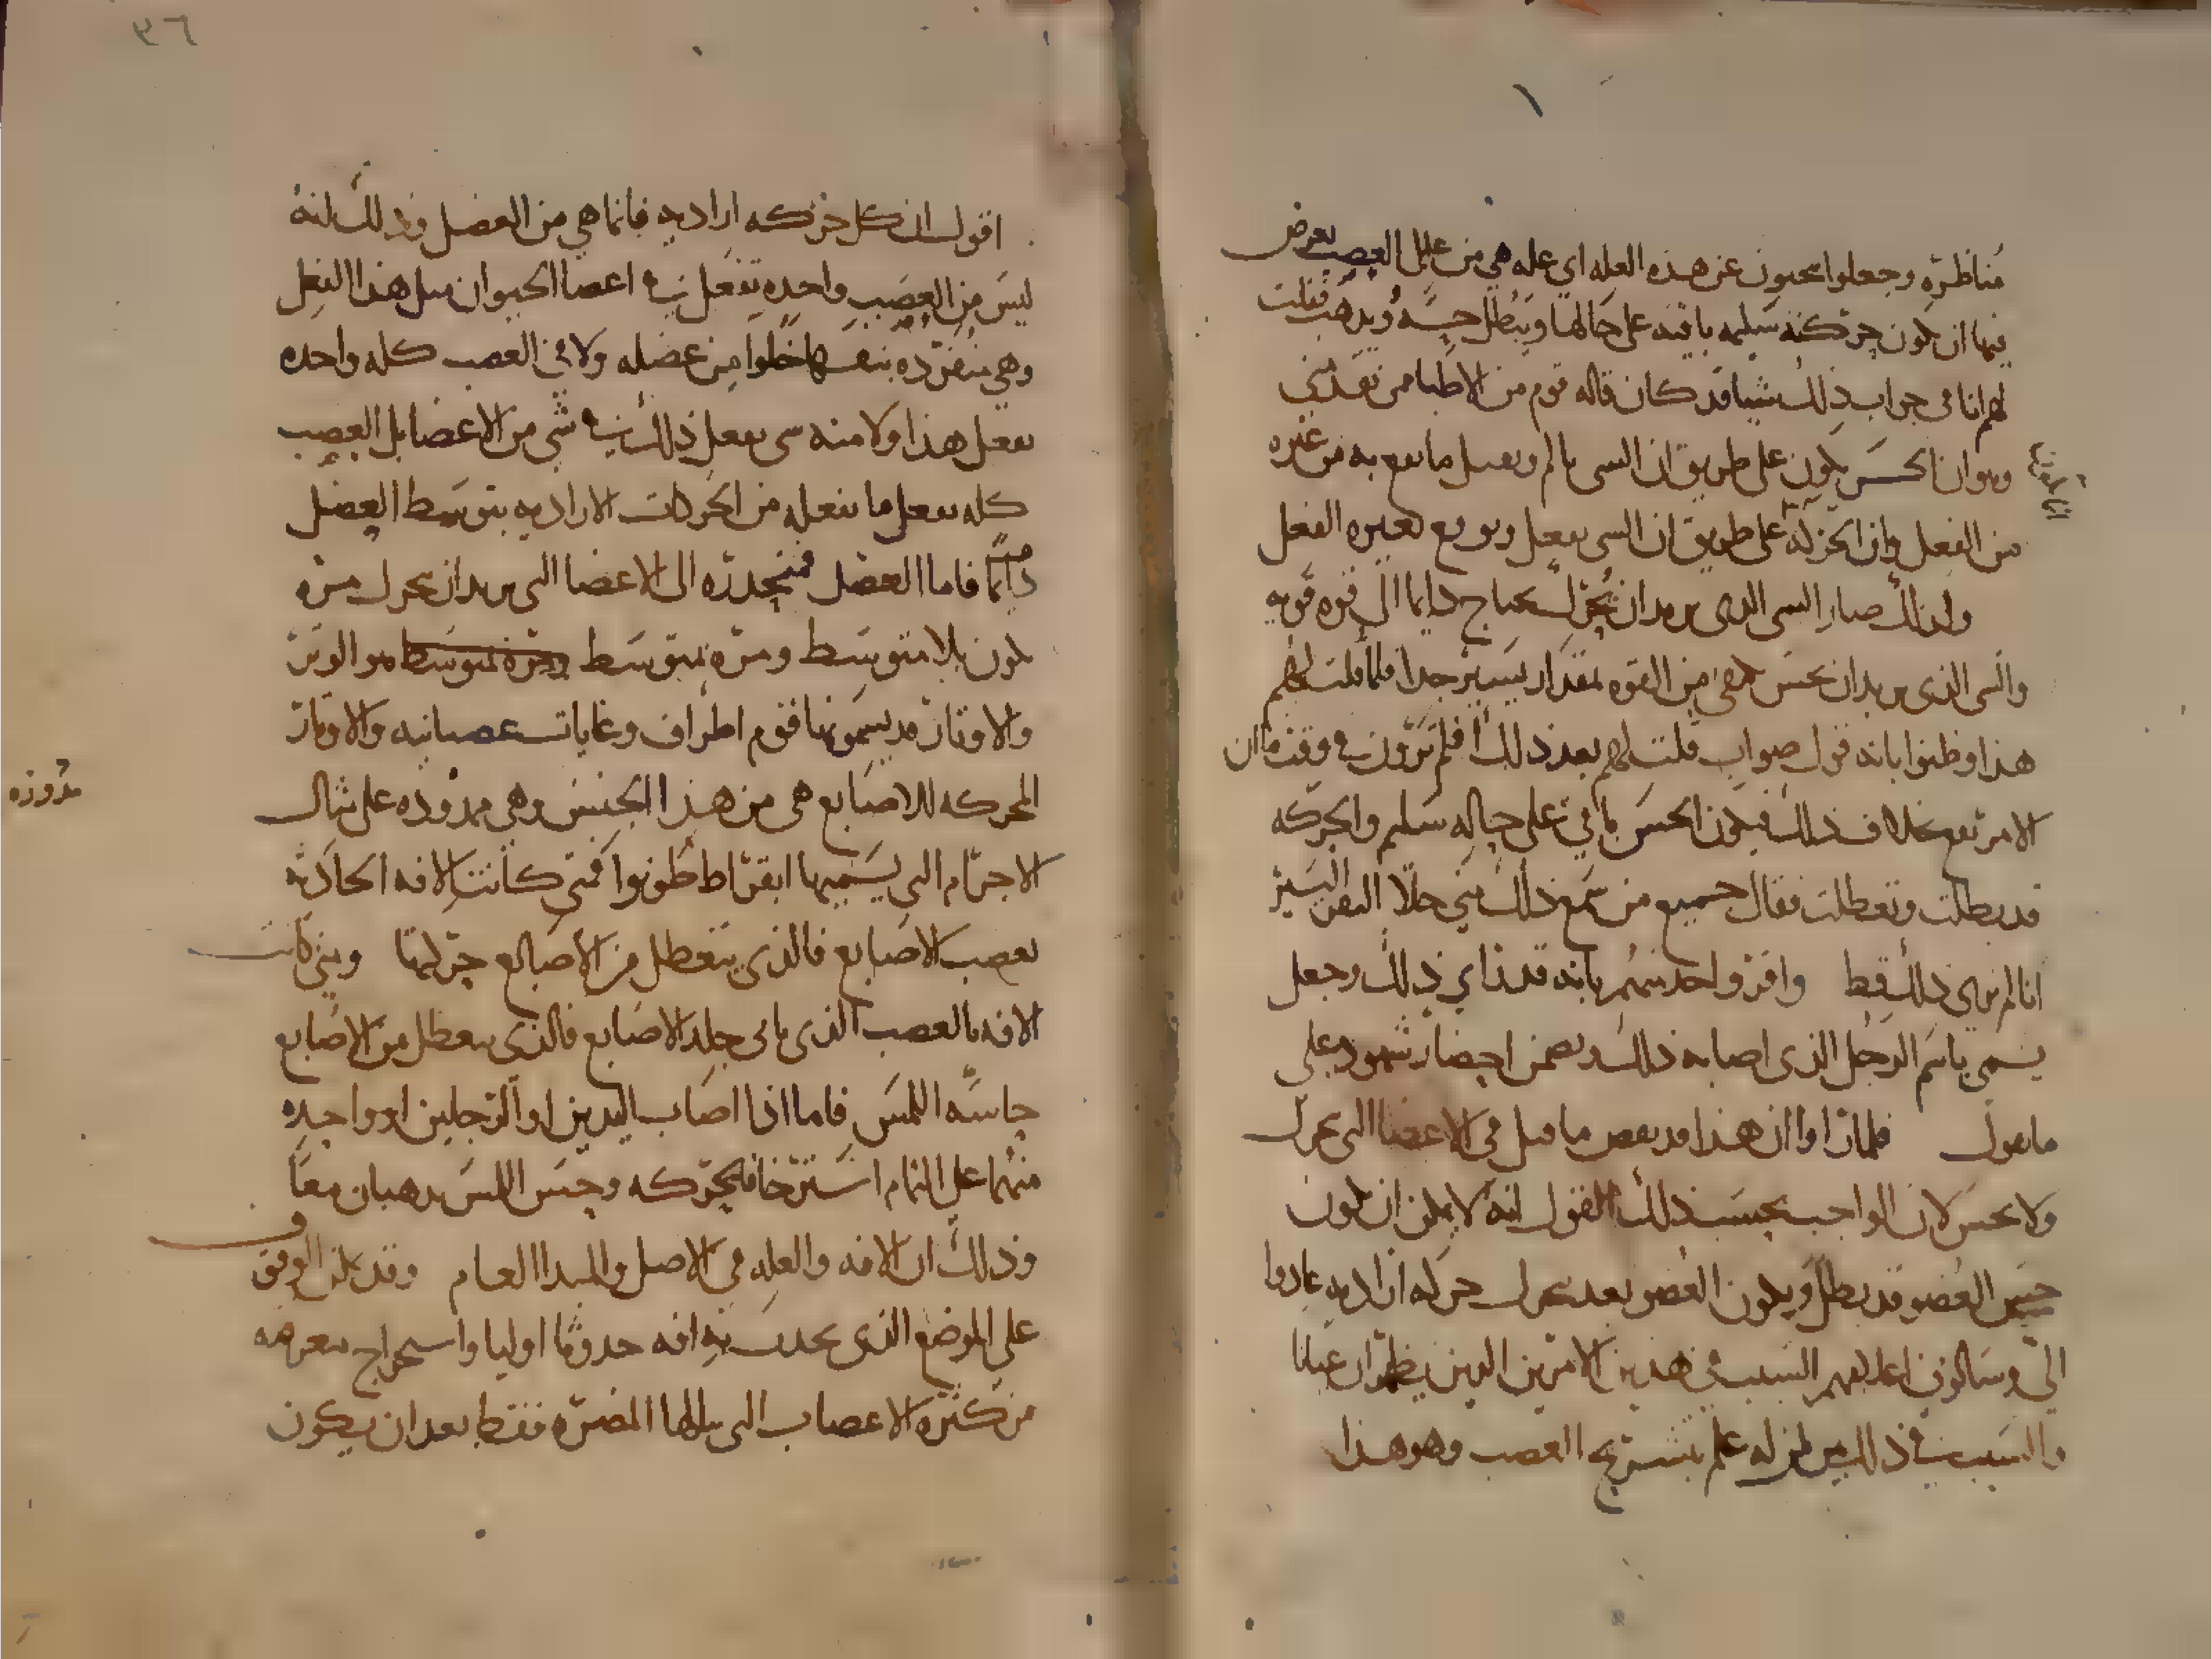 مناظره وجعلوا يجيبون عن هذه العله اي عله هي من علل العصب يعرض
فيها ان يكون حركته سليمه باقيه على حالها ويبطل حسه ويذهب فقلت
لهم انا في جواب ذلك شيا قد كان قاله قوم من الاطبا ممن تقدمني
وهو ان الحس يكون على طريق ان الشي يالم ويقبل ما يقع به من غيره
من الفعل وان الحركه على طريق ان الشي يفعل ويوقع بغيره الفعل
ولذلك صار الشي الذي يريد ان يحرك يحتاج دايما الى قوه قويه
والشي الذي يريد ان يحس يكتفي من القوه بمقدار يسير جدا فلما قلت لهم
هذا وظنوا بانه قول صواب قلت لهم بعد ذلك افلم ترون في وقت ما ان
الامر يقع بخلاف ذلك فيكون الحس باقي على حاله سليم والحركه
قد بطلت وتعطلت فقال جميع من سمع ذلك مني خلا النفر اليسير
انا لم نرى ذلك قط واقر واحد منهم بانه قد راي ذلك وجعل
يسمي باسم الرجل الذي اصابه ذلك ويضمن احضار شهود على
ما يقول فلما راوا ان هذا قد ينقض ما قيل في الاعضا التي تحرك
ولا تحس لان الواجب بحسب ذلك القول انه لا يمكن ان يكون
حس العضو قد بطل ويكون العضو بعد يتحرك حركه اراديه عادوا
الي وسالوني اعلمهم السبب في هذين الامرين الذين يظهران عيانا
والسبب في ذلك بين لمن له علم بتشريح العصب وهو هذا
٣٦
اقول ان كل حركه اراديه فانما هي من العضل وذلك لانه
ليس من العصب واحده تفعل في اعضا الحيوان مثل هذا الفعل
وهي منفرده بنفسها خلوا من عضله ولا في العصب كله واحده
تفعل هذا ولا منه شي يفعل ذلك في شي من الاعضا بل العصب
كله يفعل ما يفعله من الحركات الاراديه بتوسط العضل
دايما فاما العضل فمنحدره الى الاعضا التي يريد ان يحرك مره
يكون بلا متوسط ومره بمتوسط ومره بمتوسط هو الوتر
والاوتار قد يسمونها قوم اطراف وغايات عصبانيه والاوتار
المحركه للاصابع هي من هذا الجنس وهي ممدوده على مثال
الاجرام التي يسميها ابقراط طونوا فمتى كانت الافه الحادثه
بعصب الاصابع فالذي يتعطل من الاصابع حركتها ومتى كانت
الافه بالعصب الذي ياتي جلد الاصابع فالذي يتعطل من الاصابع
حاسه اللمس فاما اذا اصاب اليدين او الرجلين او واحده
منهما على التمام استرخا فالحركه وحس اللمس يذهبان معا
وذلك ان الافه والعله في الاصل والمبدا العام وقد يمكن الوقوف
على الموضع الذي يحدث به افه حدوثا اوليا واستخراج معرفته
من كثره الاعصاب التي ينالها المضره فقط بعد ان يكون
مدوره